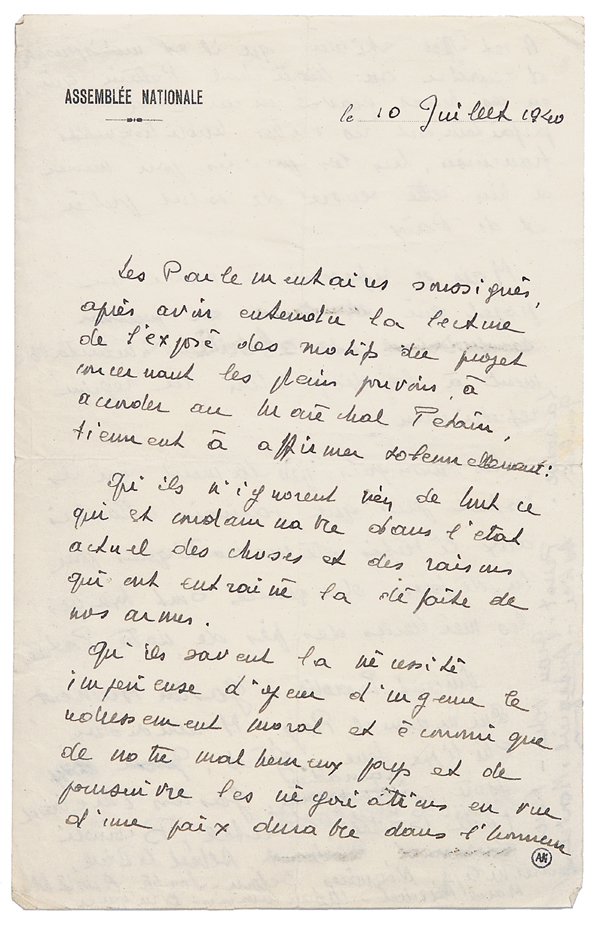 ASSEMBLÉE NATIONALE
le 10 Juillet 1940
Les Parlementaires soussignés,
après avoir entendu la lecture
de l'exposé des motifs du projet
concernant les pleins pouvoirs à
accorder au Maréchal Petain,
tiennent à affirmer solennellement :
Qu'ils n'ignorent rien de tout ce
qui est condamnable dans l'état
actuel des choses et des raisons
qui ont entrainé la défaite de
nos armes.
Qu'ils savent la nécessité
impérieuse d'opérer d'urgence le
redressement moral et économique
de notre malheureux pays et de
poursuivre les négociations en vue
d'une paix durable dans l'honneur
AN